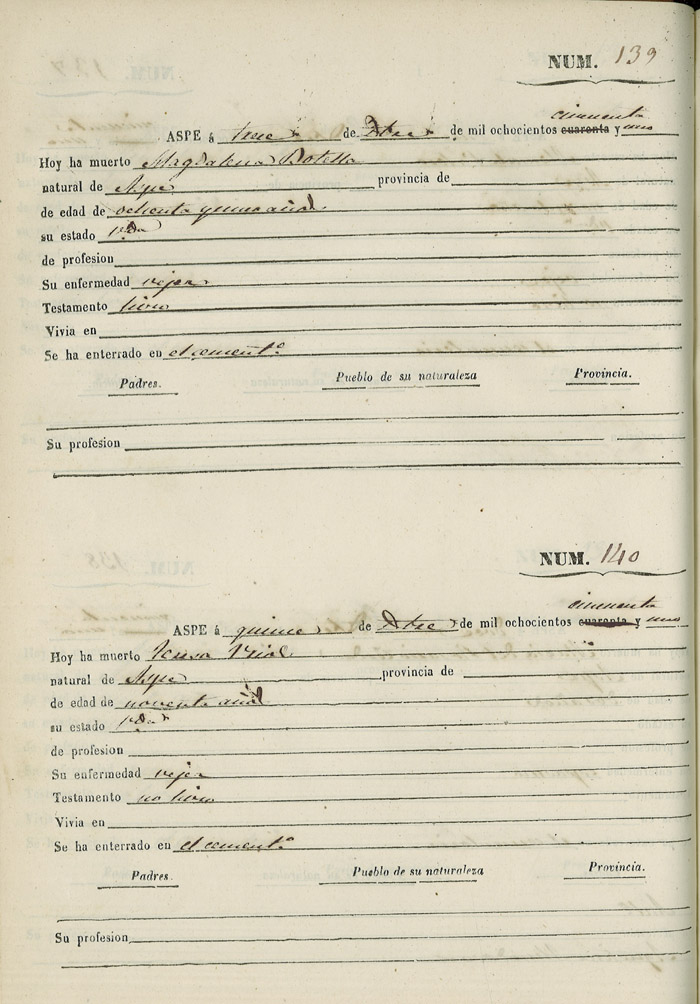 NUM. 139
cincuenta
ASPE á trece de Dbre de mil ochocientos cuarenta y uno
Hoy ha muerto Magdalena Botella
natural de Aspe provincia de
de edad de ochenta y un años
su estado vda
de profesion
Su enfermedad vejez
Testamento hizo
Vivia en
Se ha enterrado en el cementº
Padres. Pueblo de su naturaleza Provincia.
Su profesion
NUM. 140
cincuenta
ASPE á quince de Dbre de mil ochocientos cuarenta y uno
Hoy ha muerto Teresa
natural de Aspe provincia de
de edad de noventa años
su estado vda
de profesion
Su enfermedad vejez
Testamento no hizo
Vivia en
Se ha enterrado en el cementº
Padres. Pueblo de su naturaleza Provincia.
Su profesion